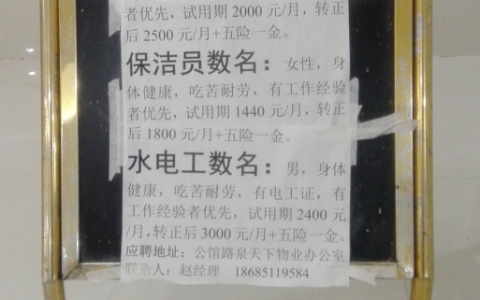 者优先，试用期 2000 元/月，转正
后 2500 元/月+五险一金。
保洁员数名：女性，身
体健康，吃苦耐劳，有工作经验
者优先，试用期 1440 元/月，转正
后 1800 元/月+五险一金。
水电工数名：男，身体
健康，吃苦耐劳，有电工证，有
工作经验者优先，试用期 2400 元
/月，转正后 3000 元/月+五险一金。
应聘地址：公馆路泉天下物业办公室
联系人：赵经理 18685119584